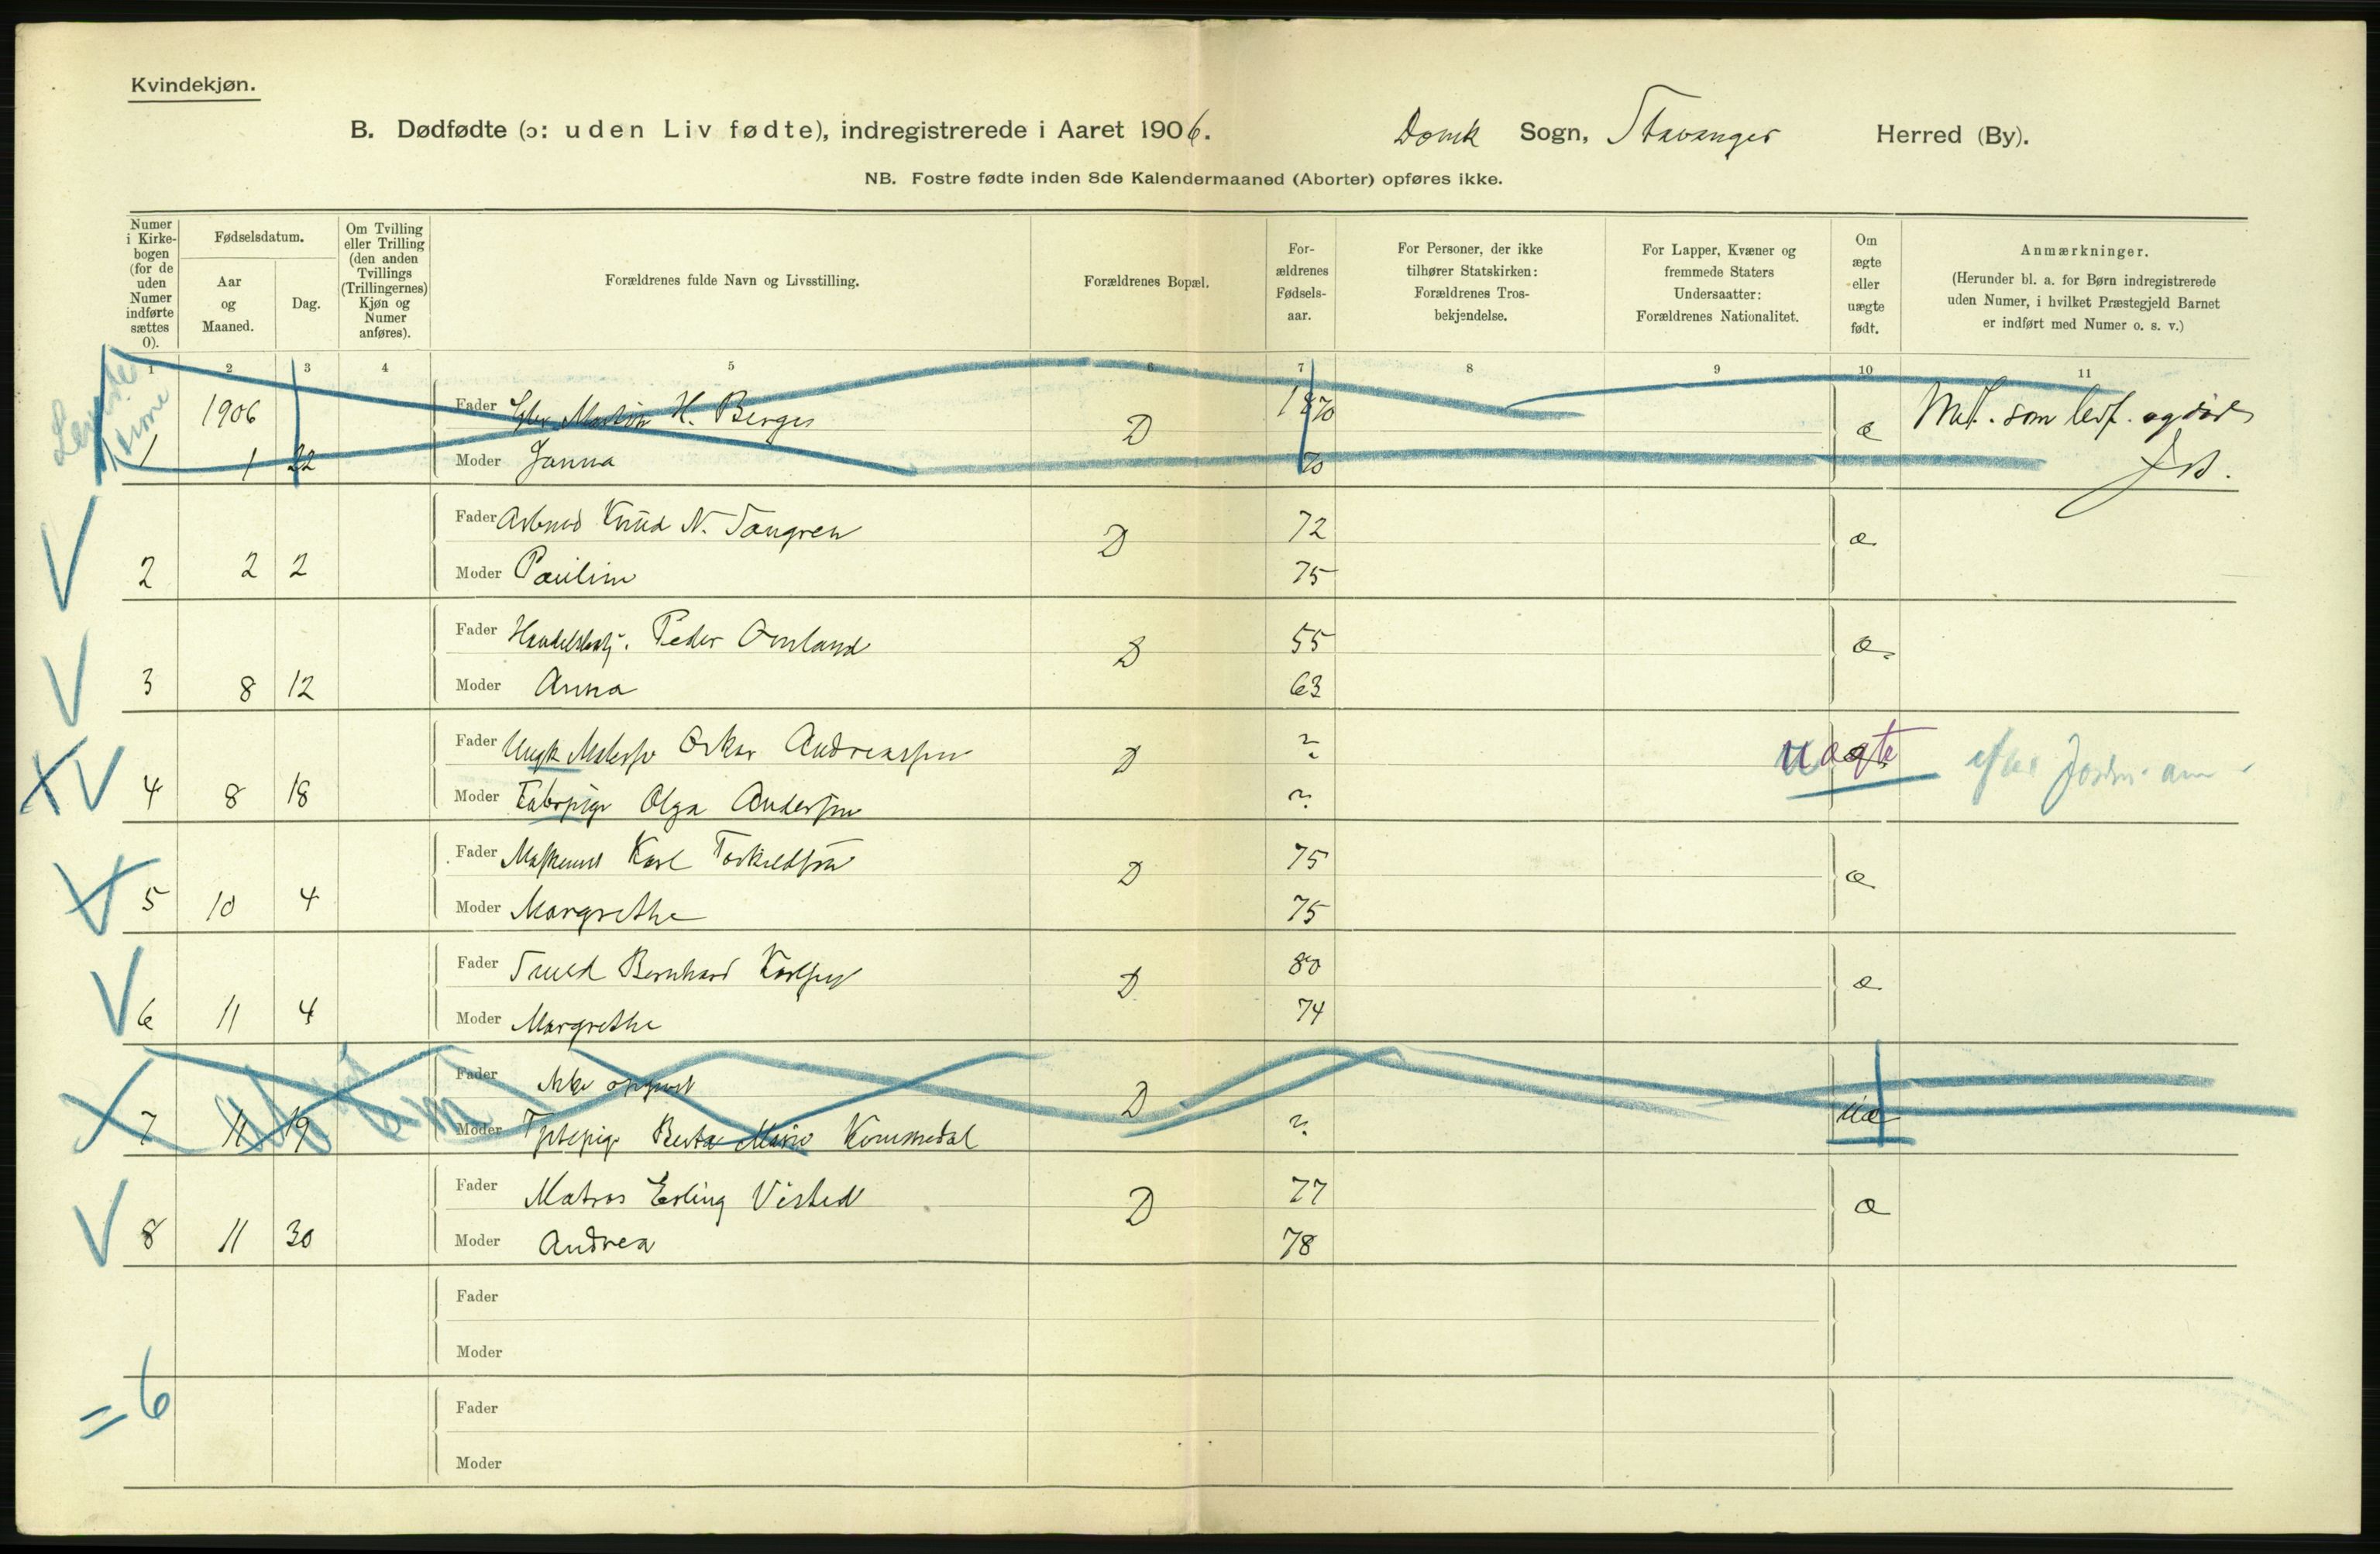 Kvindekjøn.
B. Dødfødte (ɔ: uden Liv fødte), indregistrerede i Aaret 1906. Domk Sogn, Stavanger Herred (By).
NB. Fostre fødte inden 8de Kalendermaaned (Aborter) opføres ikke.
Numer i Kirke-bogen (for de uden Numer indførte sættes 0).
Fødselsdatum.
Aar og Maaned.
Dag.
Om Tvilling eller Trilling (den anden Tvillings (Trillingernes) Kjøn og Numer anføres).
Forældrenes fulde Navn og Livsstilling.
Forældrenes Bopæl.
For-ældrenes Fødsels-aar.
For Personer, der ikke tilhører Statskirken: Forældrenes Tros-bekjendelse.
For Lapper, Kvæner og fremmede Staters Undersaatter: Forældrenes Nationalitet.
Om ægte eller uægte født.
Anmærkninger.
(Herunder bl. a. for Børn indregistrerede uden Numer, i hvilket Præstegjeld Barnet er indført med Numer o. s. v.)
1 2 3 4 5 6 7 8 9 10 11
1906 Fader Martin H. Berges D 1870 æ som levf. og død
1 1 22 Moder Janna 70
Fader Knud N. Tangren D 72 æ
2 2 2 Moder Pauline 75
Fader Peder Omland D 55 æ
3 8 12 Moder Anna 63
Fader Ungk Oskar Andreassen D ? uægte
4 8 18 Moder Fabrpige Olga Andersen ?
Fader Karl Torkildsen D 75 æ
5 10 4 Moder Margrethe 75
Fader Bernhard Karlsen D 80 æ
6 11 4 Moder Margrethe 74
Fader Ikke opgivet D uæ
7 11 19 Moder Berta Marie Kommedal ?
Fader Matros Erling Visted D 77 æ
8 11 30 Moder Andrea 78
Fader
Moder
= 6
Fader
Moder